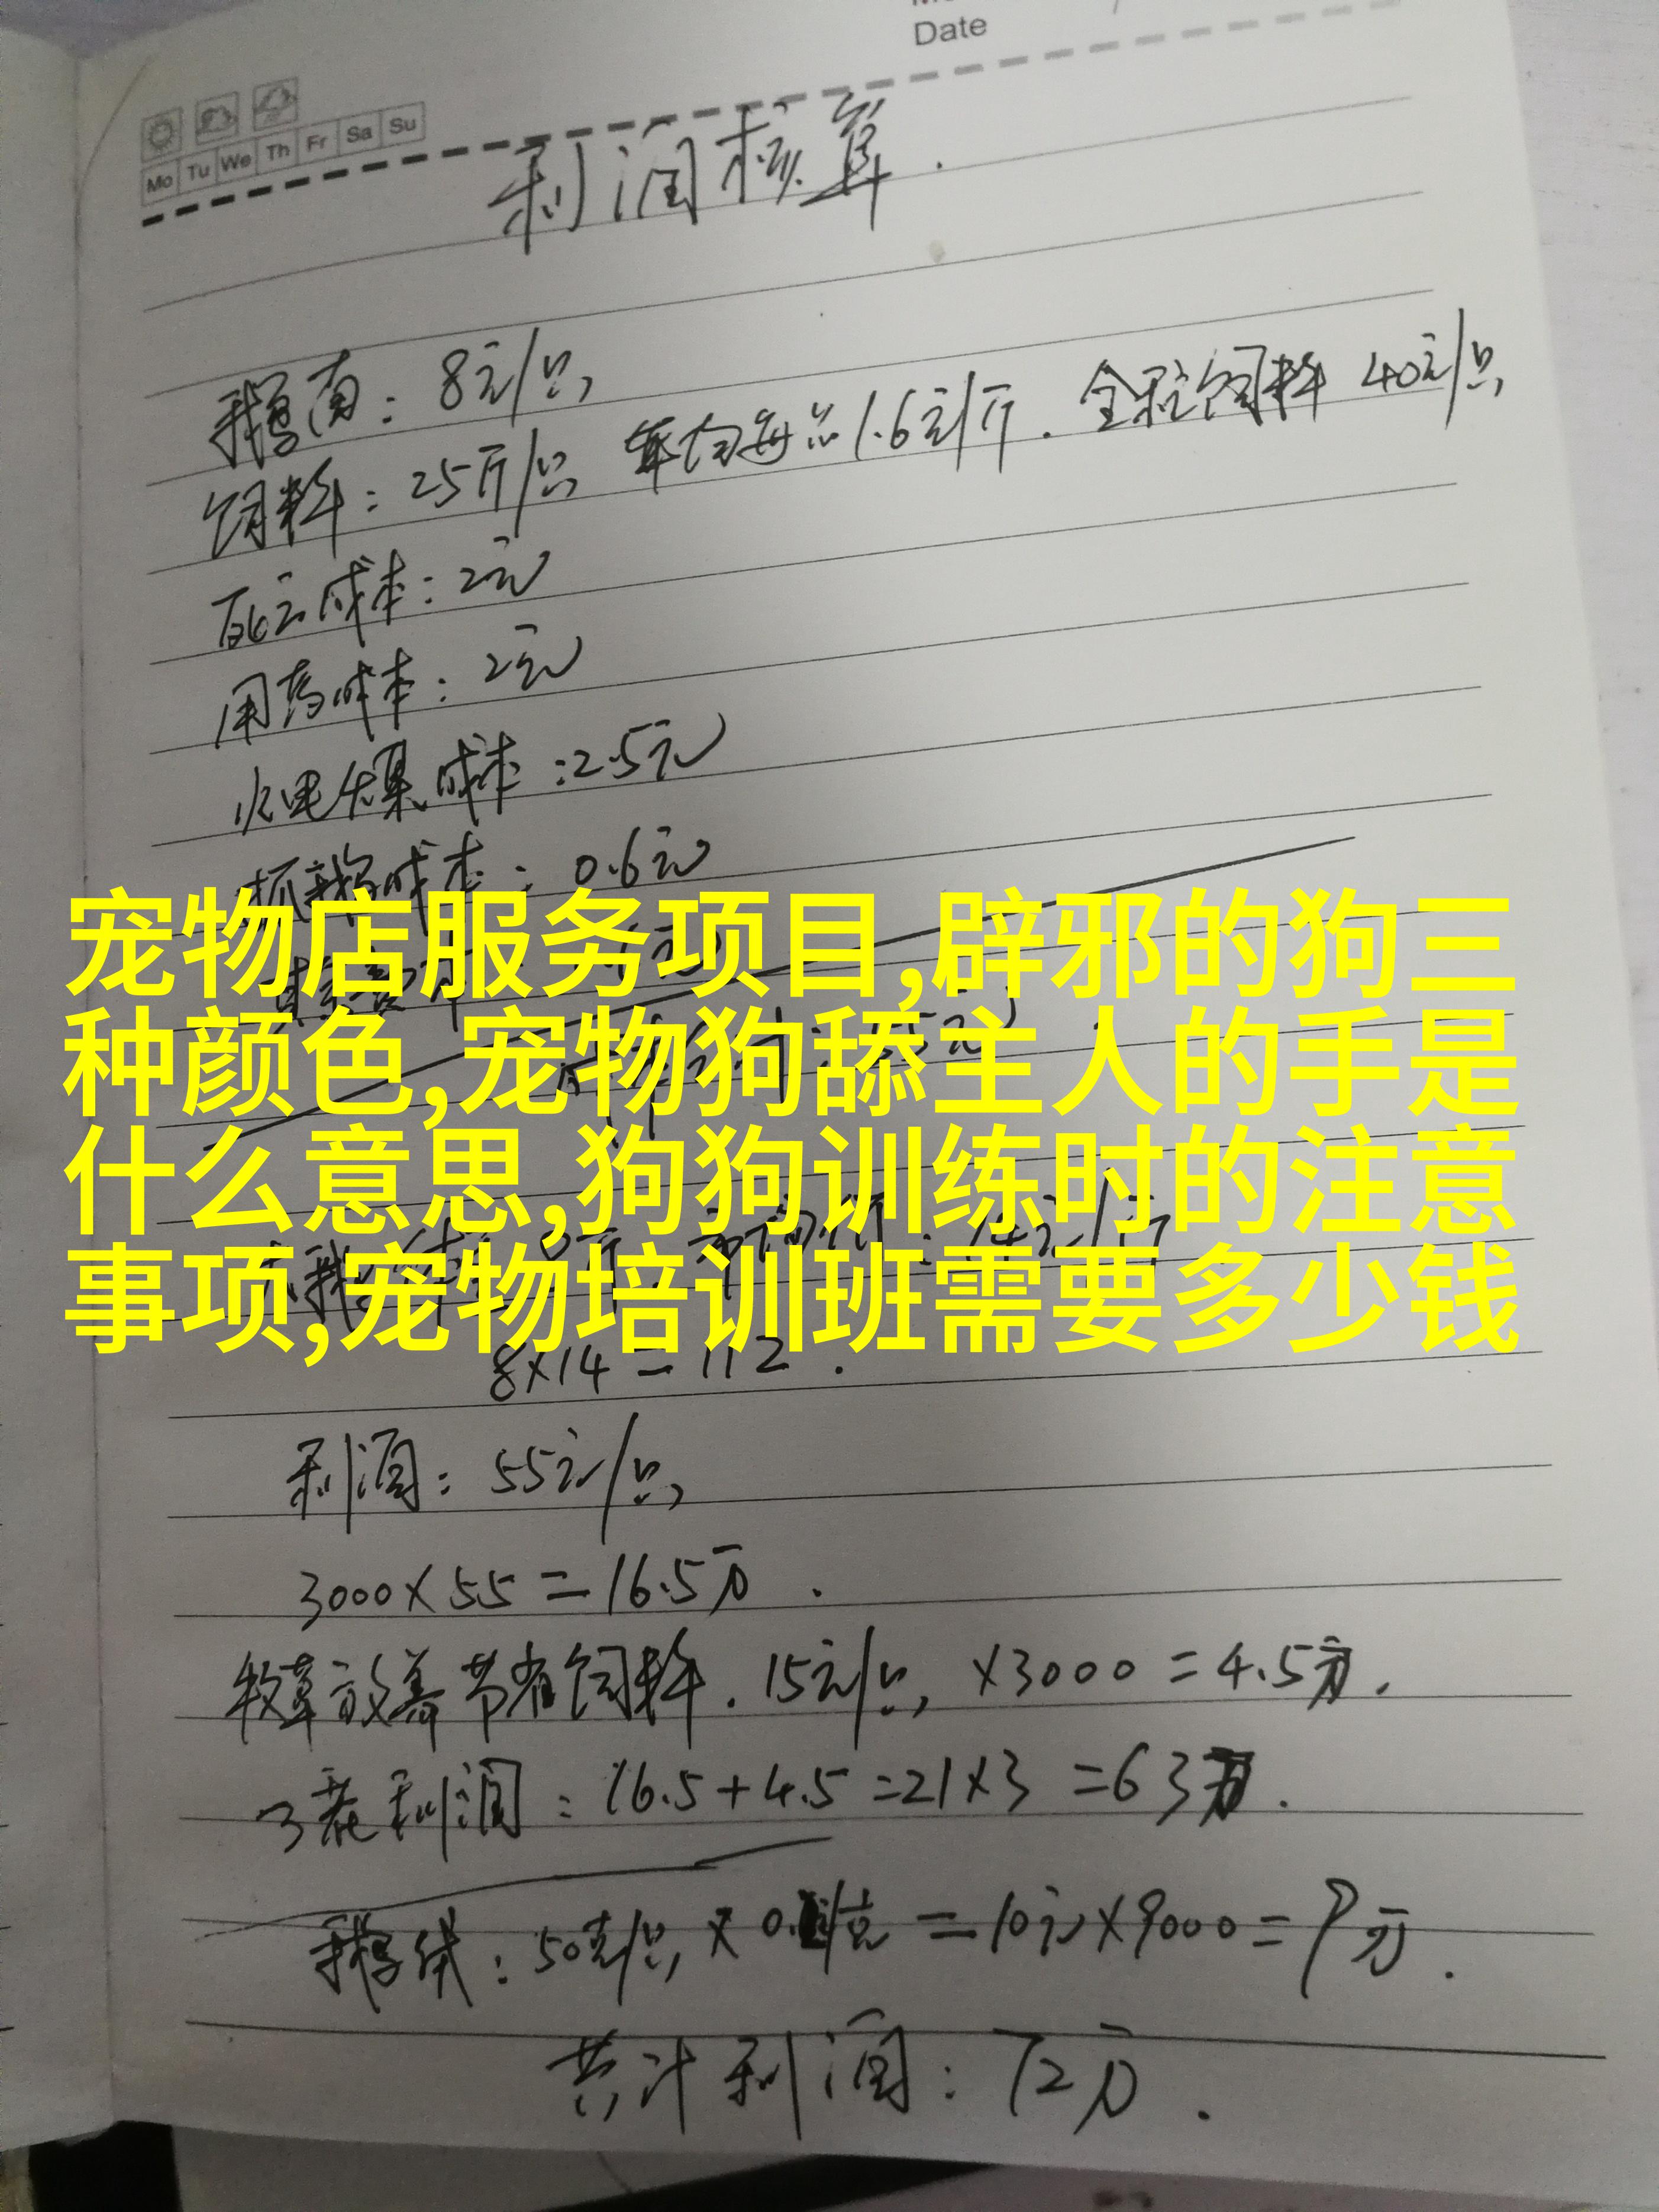 Date
Mo Tu We Th Fr Sa Su
利润核算.
鹅苗:8元/只
饲料:25斤/只 1.6元/斤.全程饲料 40元/只
死亡成本:2元
用药成本:2元
水电煤成本:2.5元
抓鹅成本:0.6元
宠物店服务项目,辟邪的狗三
种颜色,宠物狗舔主人的手是
什么意思,狗狗训练时的注意
事项,宠物培训班需要多少钱
8×14=112.
利润:55元/只
3000×55=16.5万.
牧草放养节省饲料.15元/只 ×3000=4.5万.
3茬利润:16.5+4.5=21×3=63万.
鹅绒:50克/只 =10元×9000=9万.
共计利润:72万.